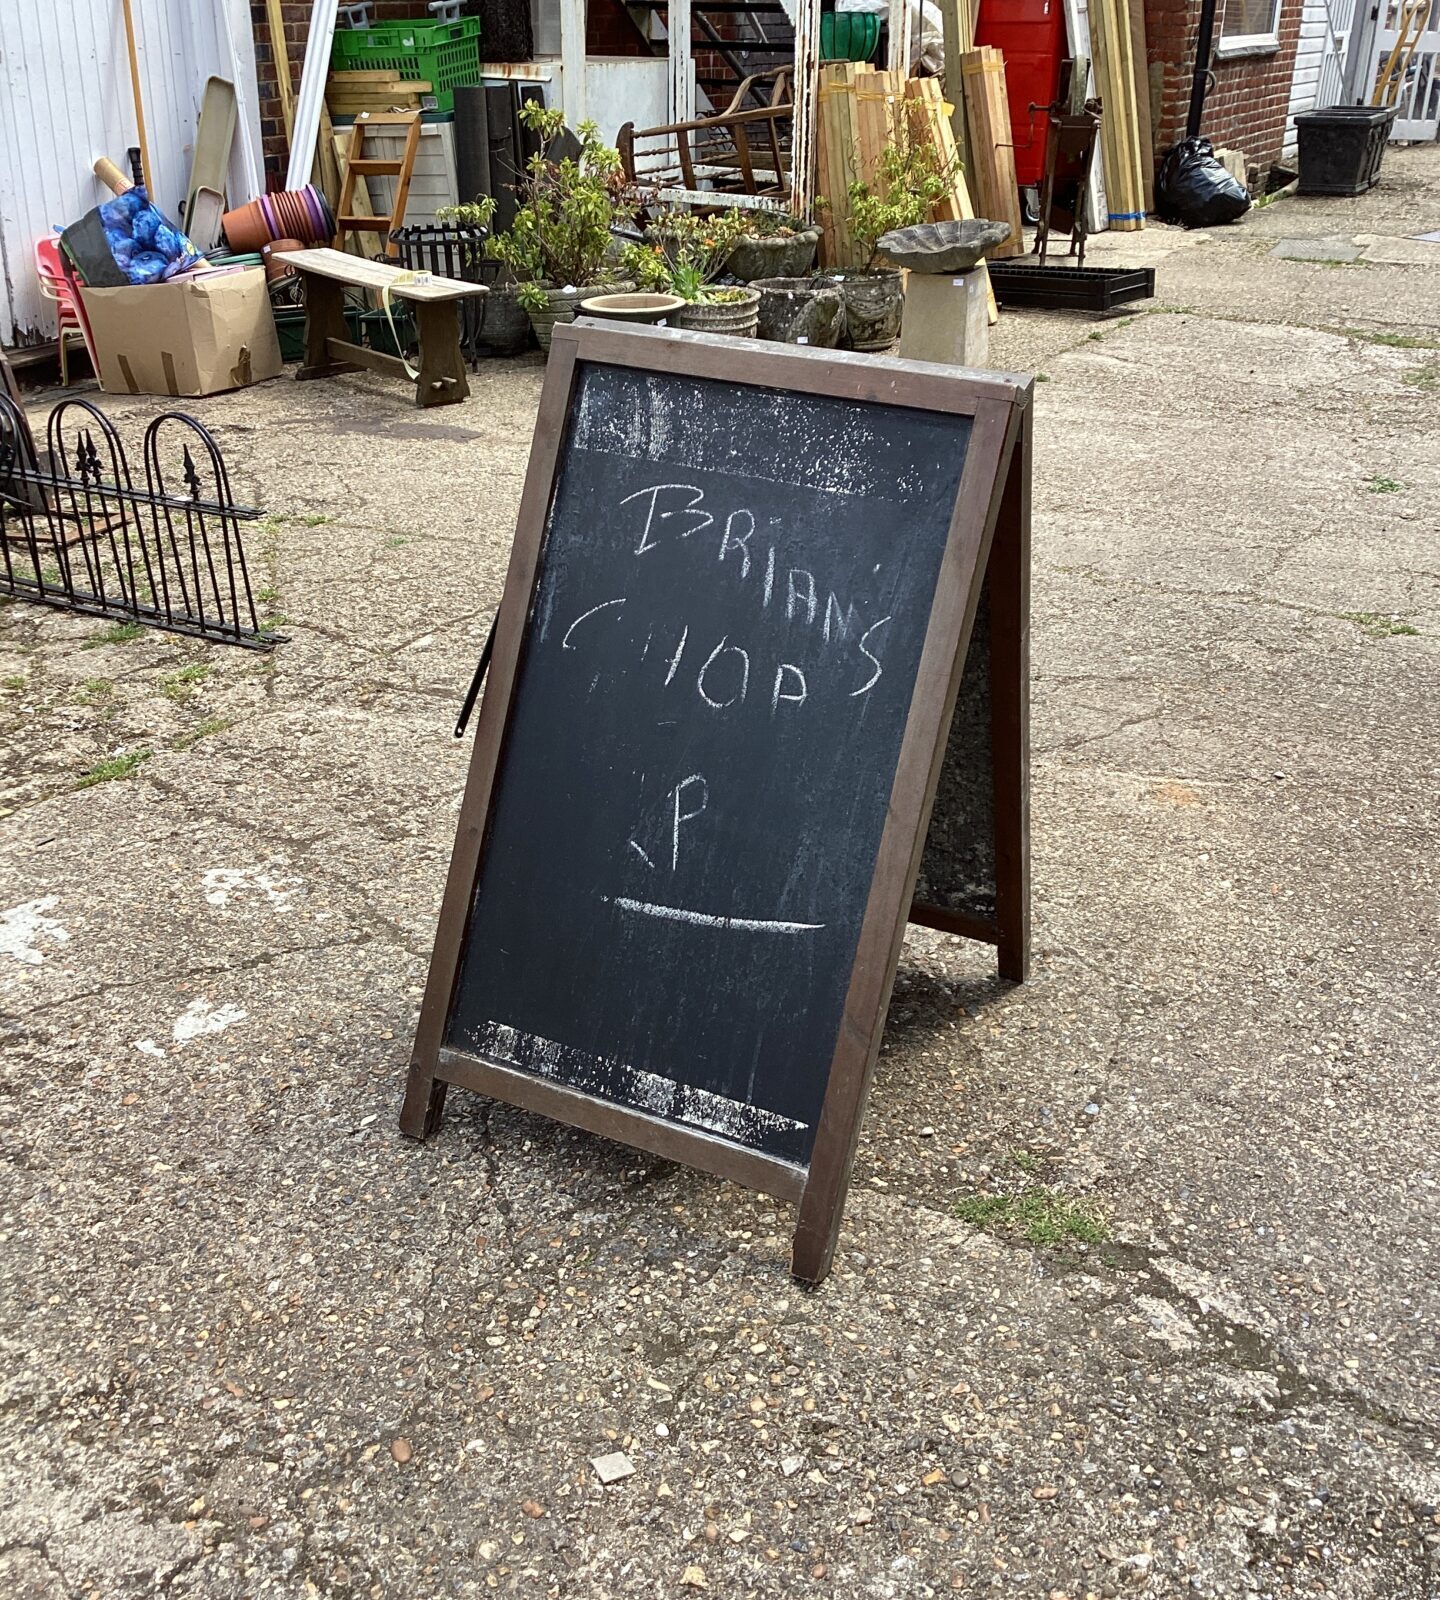 BRIAN'S
SHOP
P